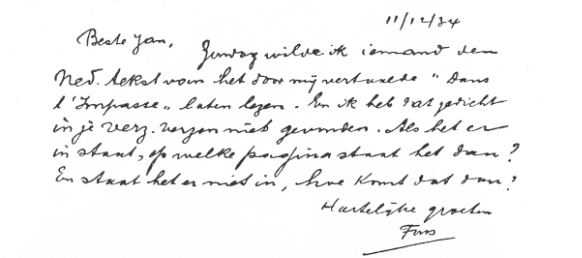 11/12/34
Beste Jan,
Zondag wilde ik iemand den
Ned. tekst van het door mij vertaalde "Dans
l'Impasse" laten lezen. En ik heb dat gedicht
in je verz. verzen niet gevonden. Als het er
in staat, op welke pagina staat het dan?
En staat het er niet in, hoe komt dat dan?
Hartelijke groeten